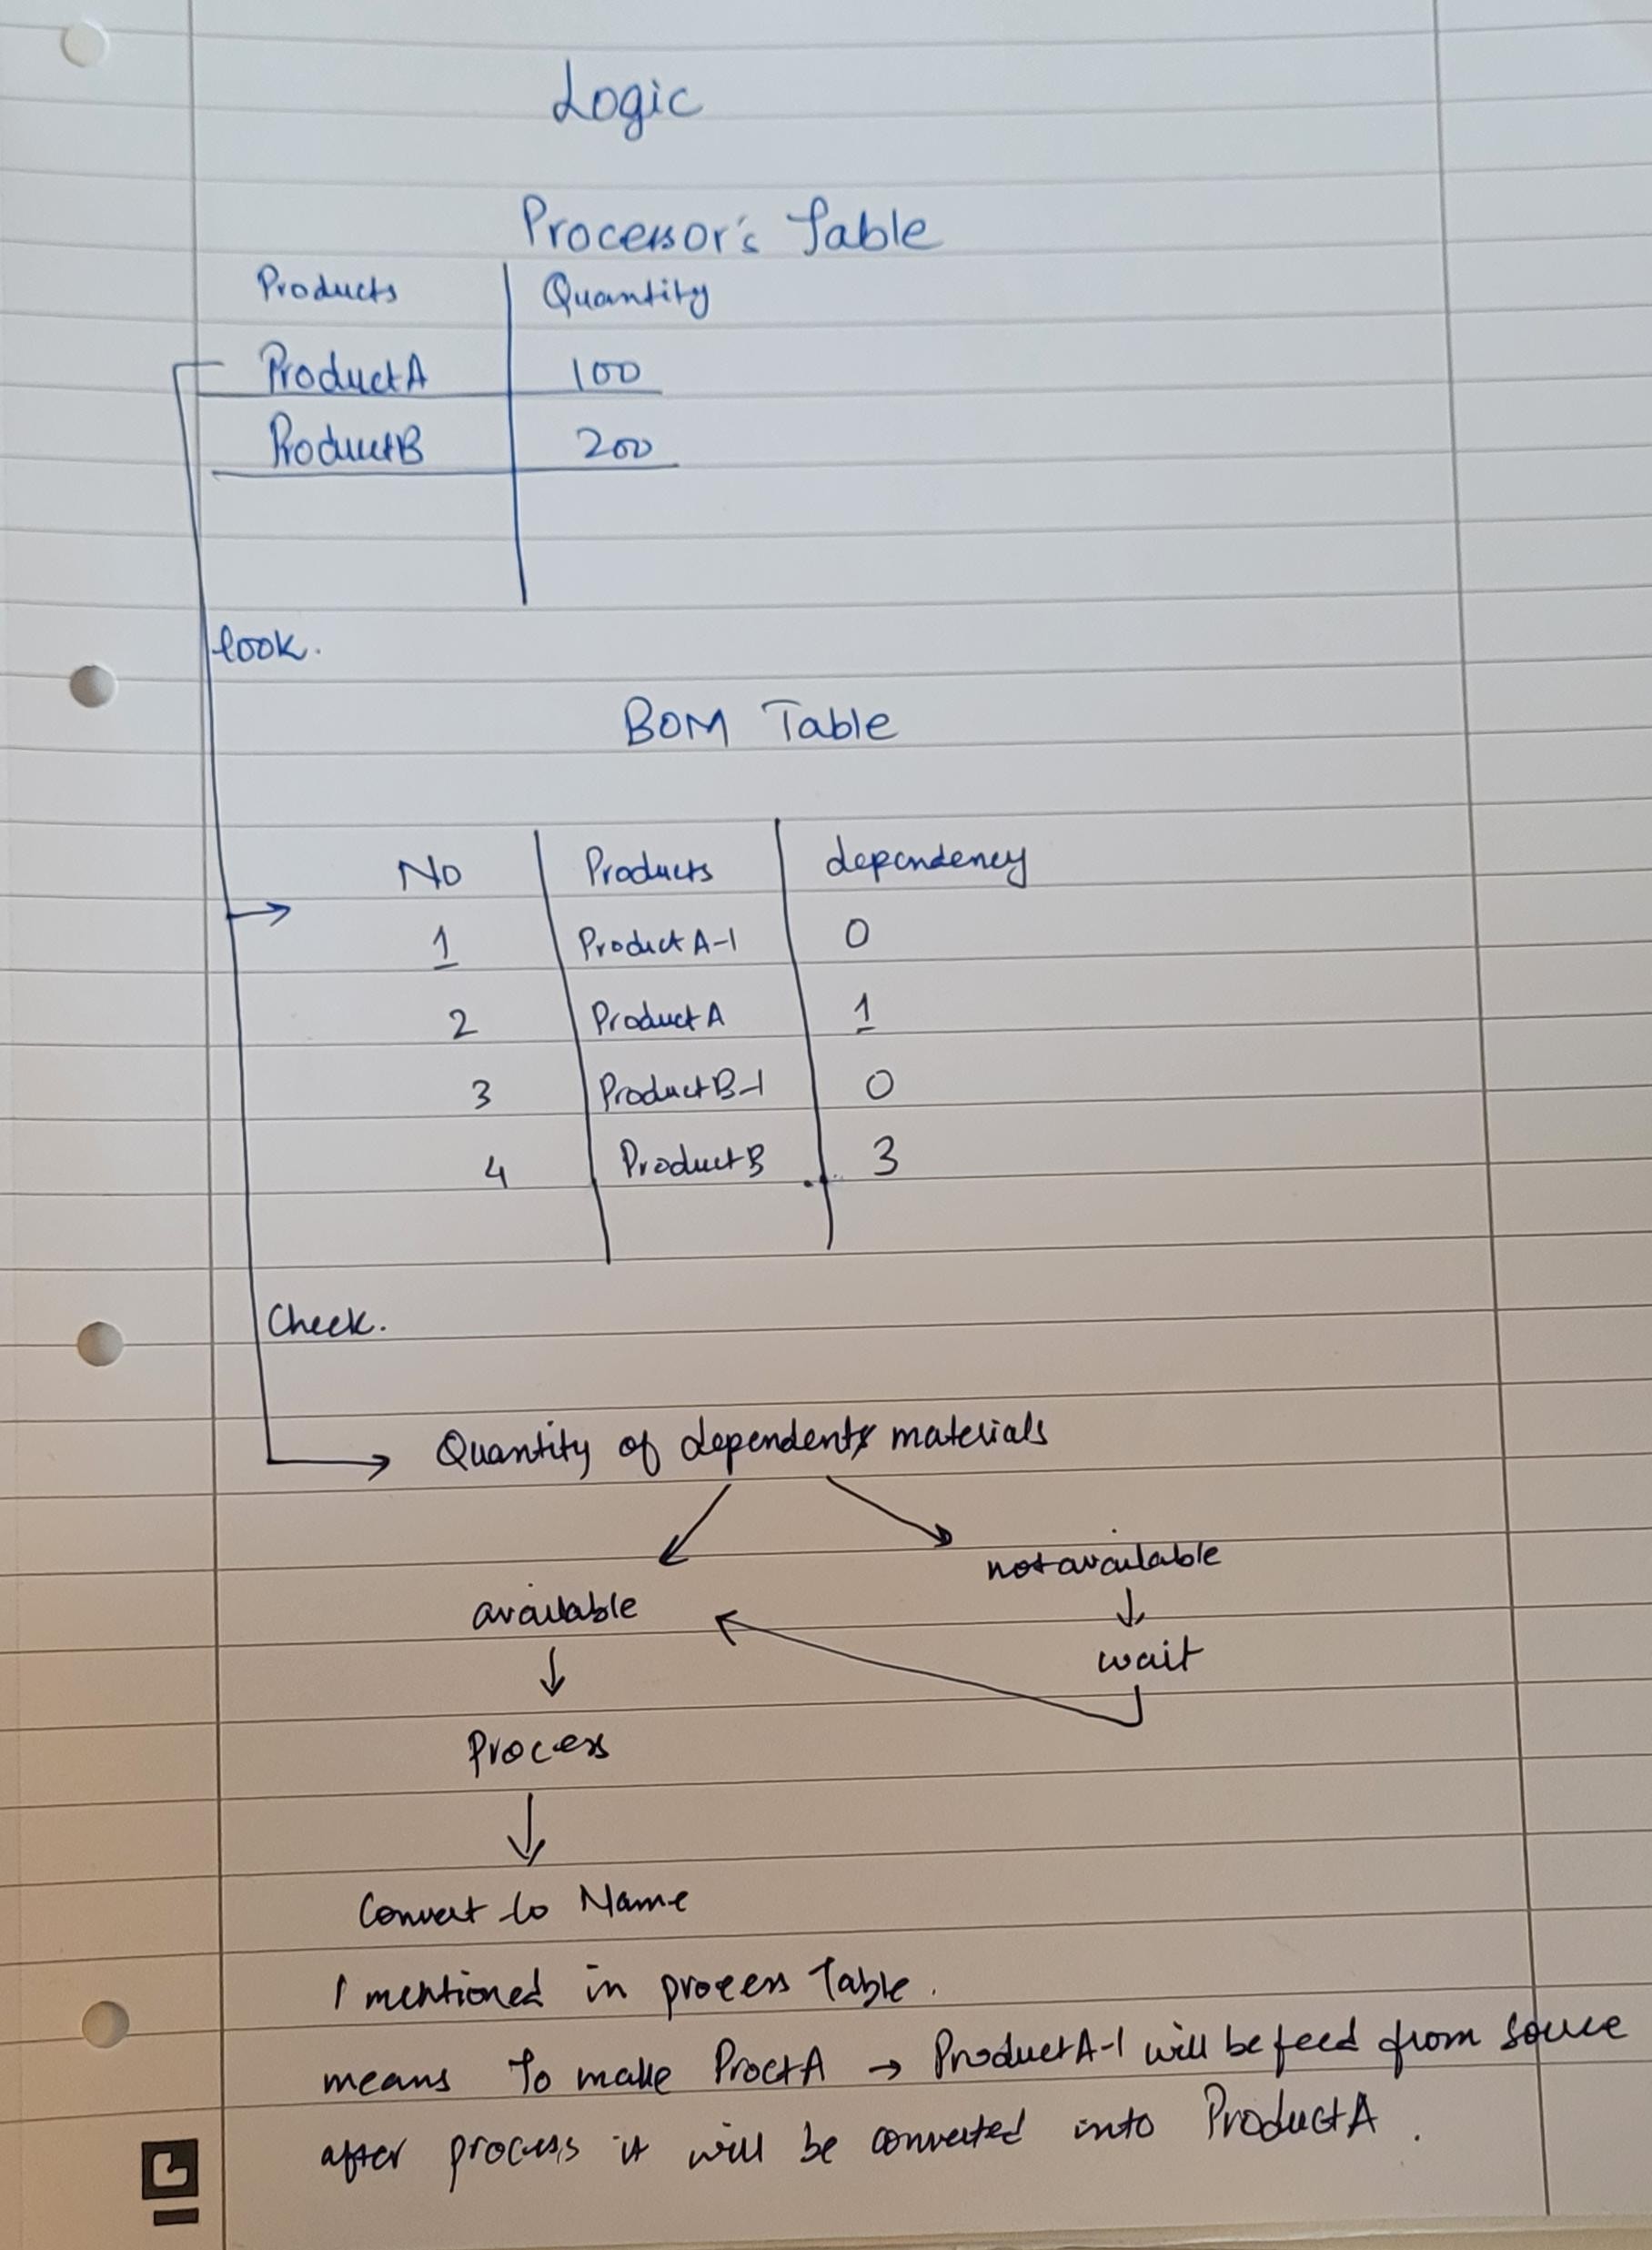 Logic
Processor's Table
Products Quantity
ProductA 100
ProductB 200
look.
BOM Table
No Products dependency
1 Product A-1 0
2 Product A 1
3 Product B-1 0
4 Product B 3
Check.
Quantity of dependents materials
available not available
wait
Process
Convert to Name
I mentioned in process Table.
means To make ProctA → ProductA-1 will be feed from source
after process it will be converted into ProductA.